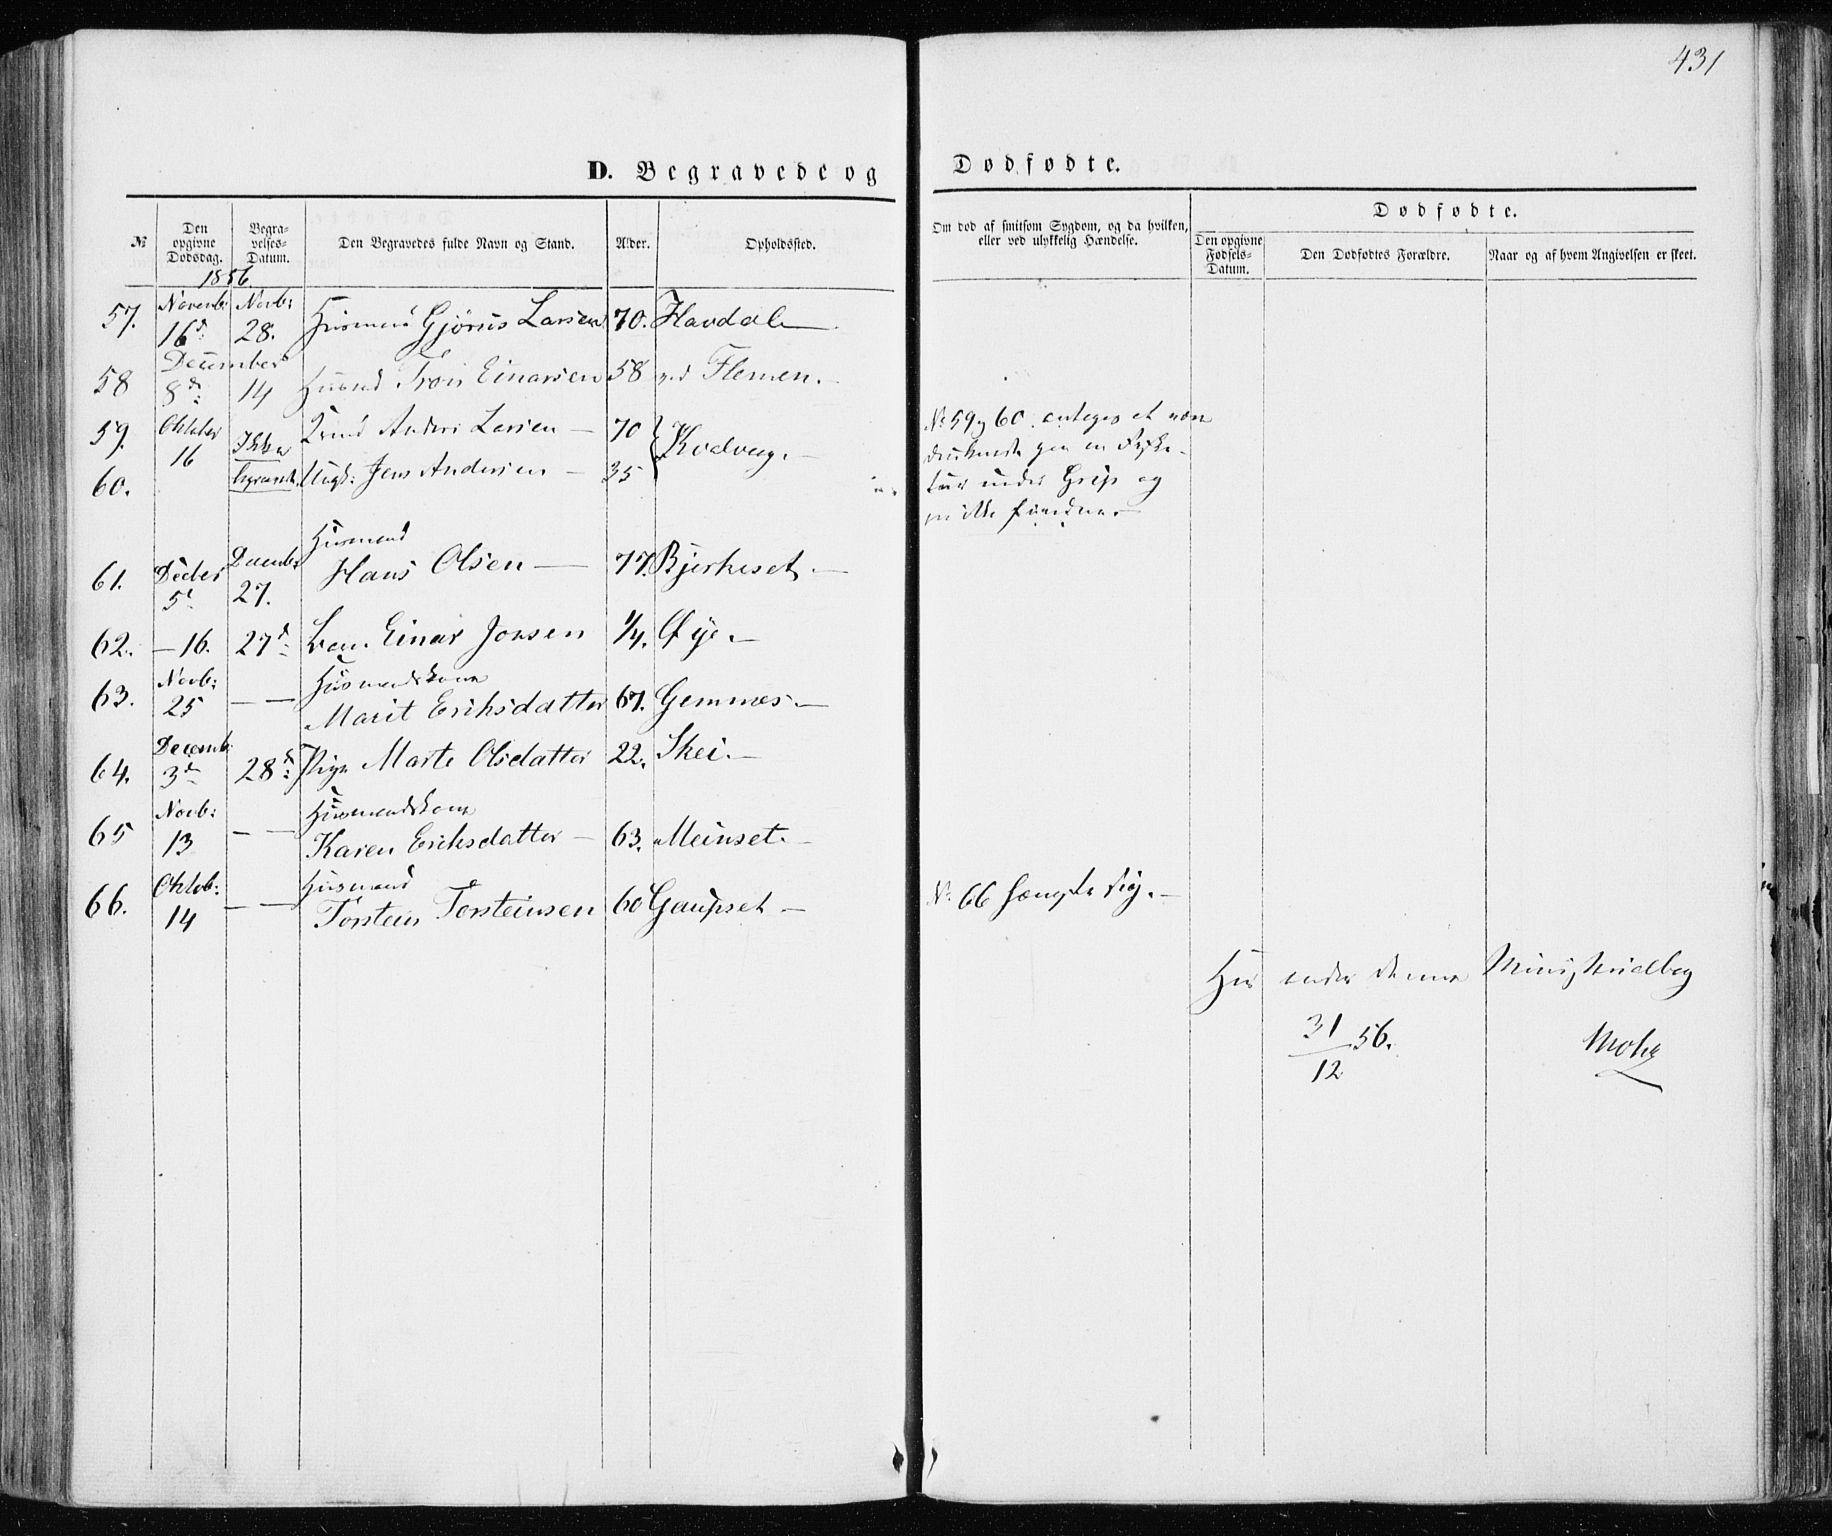 431
D. Begravede og Dødfødte.
№
Den opgivne Dødsdag.
Begravelses-Datum.
Den Begravedes fulde Navn og Stand.
Alder.
Opholdssted.
Om død af smitsom Sygdom, og da hvilken, eller ved ulykkelig Hændelse.
Dødfødte.
Den opgivne Fødsels-Datum.
Den Dødfødtes Forældre.
Naar og af hvem Angivelsen er skeet.
1856
57. Novenb: 16d: Novb: 28. Husmand Gjørus Larsen 70. Havdal
58 December 8de: 14 Tron Einarsen 58 Flemen.
59. Oktober 16 Ikke Anders Larsen 70 Kvalvag.
60. begravede Ungk: Jens Andersen 35
No 59 og 60. antages at være
druknede paa en Fiske-
tur under Grip og
ei ikke fundne.
61. Decber 5t Decemb: 27. Husmand Hans Olsen 77. Bjerkeset.
62. 16. 27d: Barn Einar Jonsen 1/4. Øye.
63. Novb: 25 Husmandskone
Marit Eriksdatter 67. Gemmes.
64. Decemb: 3d 28d: Pige Marte Olsdatter 22. Skei.
65 Novb: 13 Husmandskone
Karen Eriksdatter 63. Meinset.
66. Oktob: 14 Husmand
Torstein Torsteinsen 60 Gaupset
N: 66 hængte sig.
Her ender denne Ministerialbog
31/12 56.